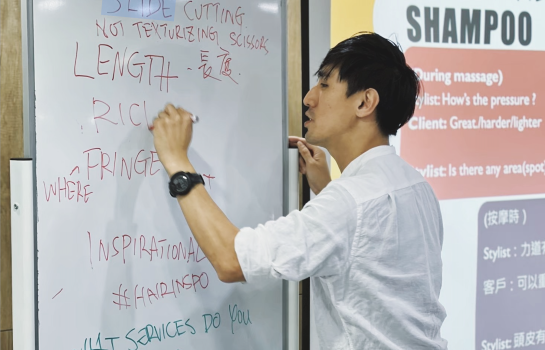 SLIDE CUTTING
NOT TEXTURIZING SCISSORS
LENGTH - 長度
FRINGE
WHERE
INSPIRATIONAL
#HAIRINSPO
SERVICES DO YOU
SHAMPOO
(During massage)
Stylist: How's the pressure ?
Client: Great/harder/lighter
Stylist: Is there any area(spot)
(按摩時)
Stylist: 力道
客戶：可以
Stylist: 頭皮有